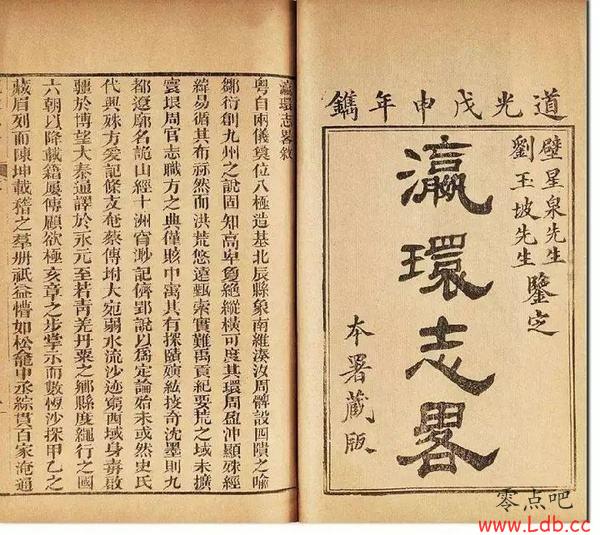 道光戊申年鐫
壁星泉先生
劉玉坡先生
鑒定
瀛環志畧
本署藏版
瀛環志畧敘
粵自兩儀奠位八極造基北辰縣象南維湊沒周髀設四隤之喻
鄒衍創九州之說固知高卑負絕縱橫可度其環周盈沖顯殊經
緯易循其布祘然而洪荒悠遠甄索實難禹貢紀要荒之域未擴
寰垠周官志職方之典僅賅中寓其有探賾紘投奇沈墨則九
都遼廓名詭山經十洲窅渺記儕郢說以爲定論始未或然史氏
代興殊方爰記條支奄蔡傳坿大宛弱水流沙迹窮西域身毒啟
疆於博望大秦通譯於永元至若青羌丹粟之鄉縣度繩行之國
六朝以降載籍屢傳顧欲極亥章之步掌示而數恆沙探甲乙之
藏眉列而陳坤載稽之羣册祇益懵如松龕中丞綜貫百家淹通
零点吧
www.Ldb.cc